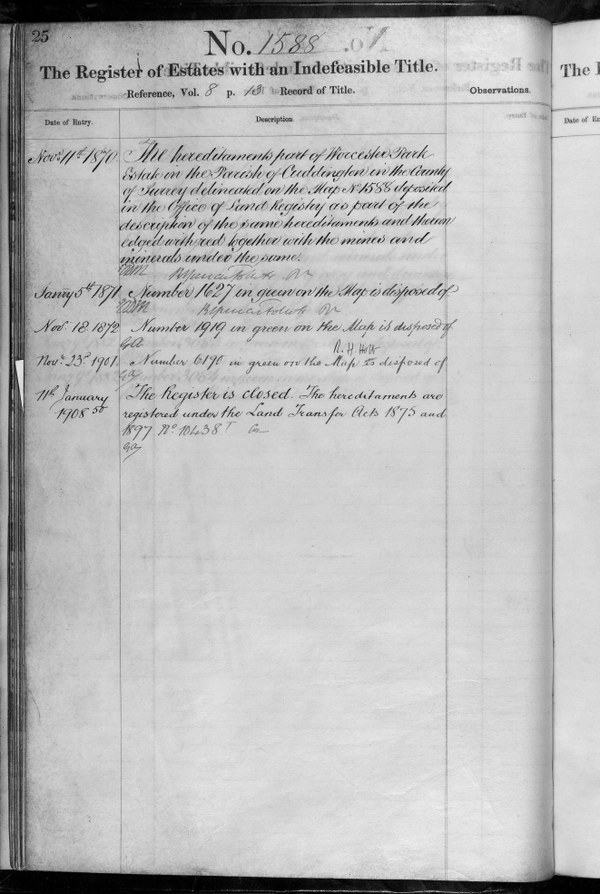 25
No. 1588
The Register of Estates with an Indefeasible Title.
Reference, Vol. 8 p. 13 Record of Title.
Observations.
Date of Entry.
Description
Novr. 11th 1870
The hereditaments part of Worcester Park
Estate in the Parish of Cuddington in the County
of Surrey delineated on the Map No 1588 deposited
in the Office of Land Registry as part of the
description of the same hereditaments and therein
edged with red together with the mines and
minerals under the same.
Janny 5th 1871
Number 1627 in green on the Map is disposed of
Nov. 18 1872
Number 1919 in green on the Map is disposed of
R. H. Holt
Novr. 23rd 1901
Number 6190 in green on the Map is disposed of
11th January
1908
The Register is closed. The hereditaments are
registered under the Land Transfer Acts 1875 and
1897 No
The R
Date of En